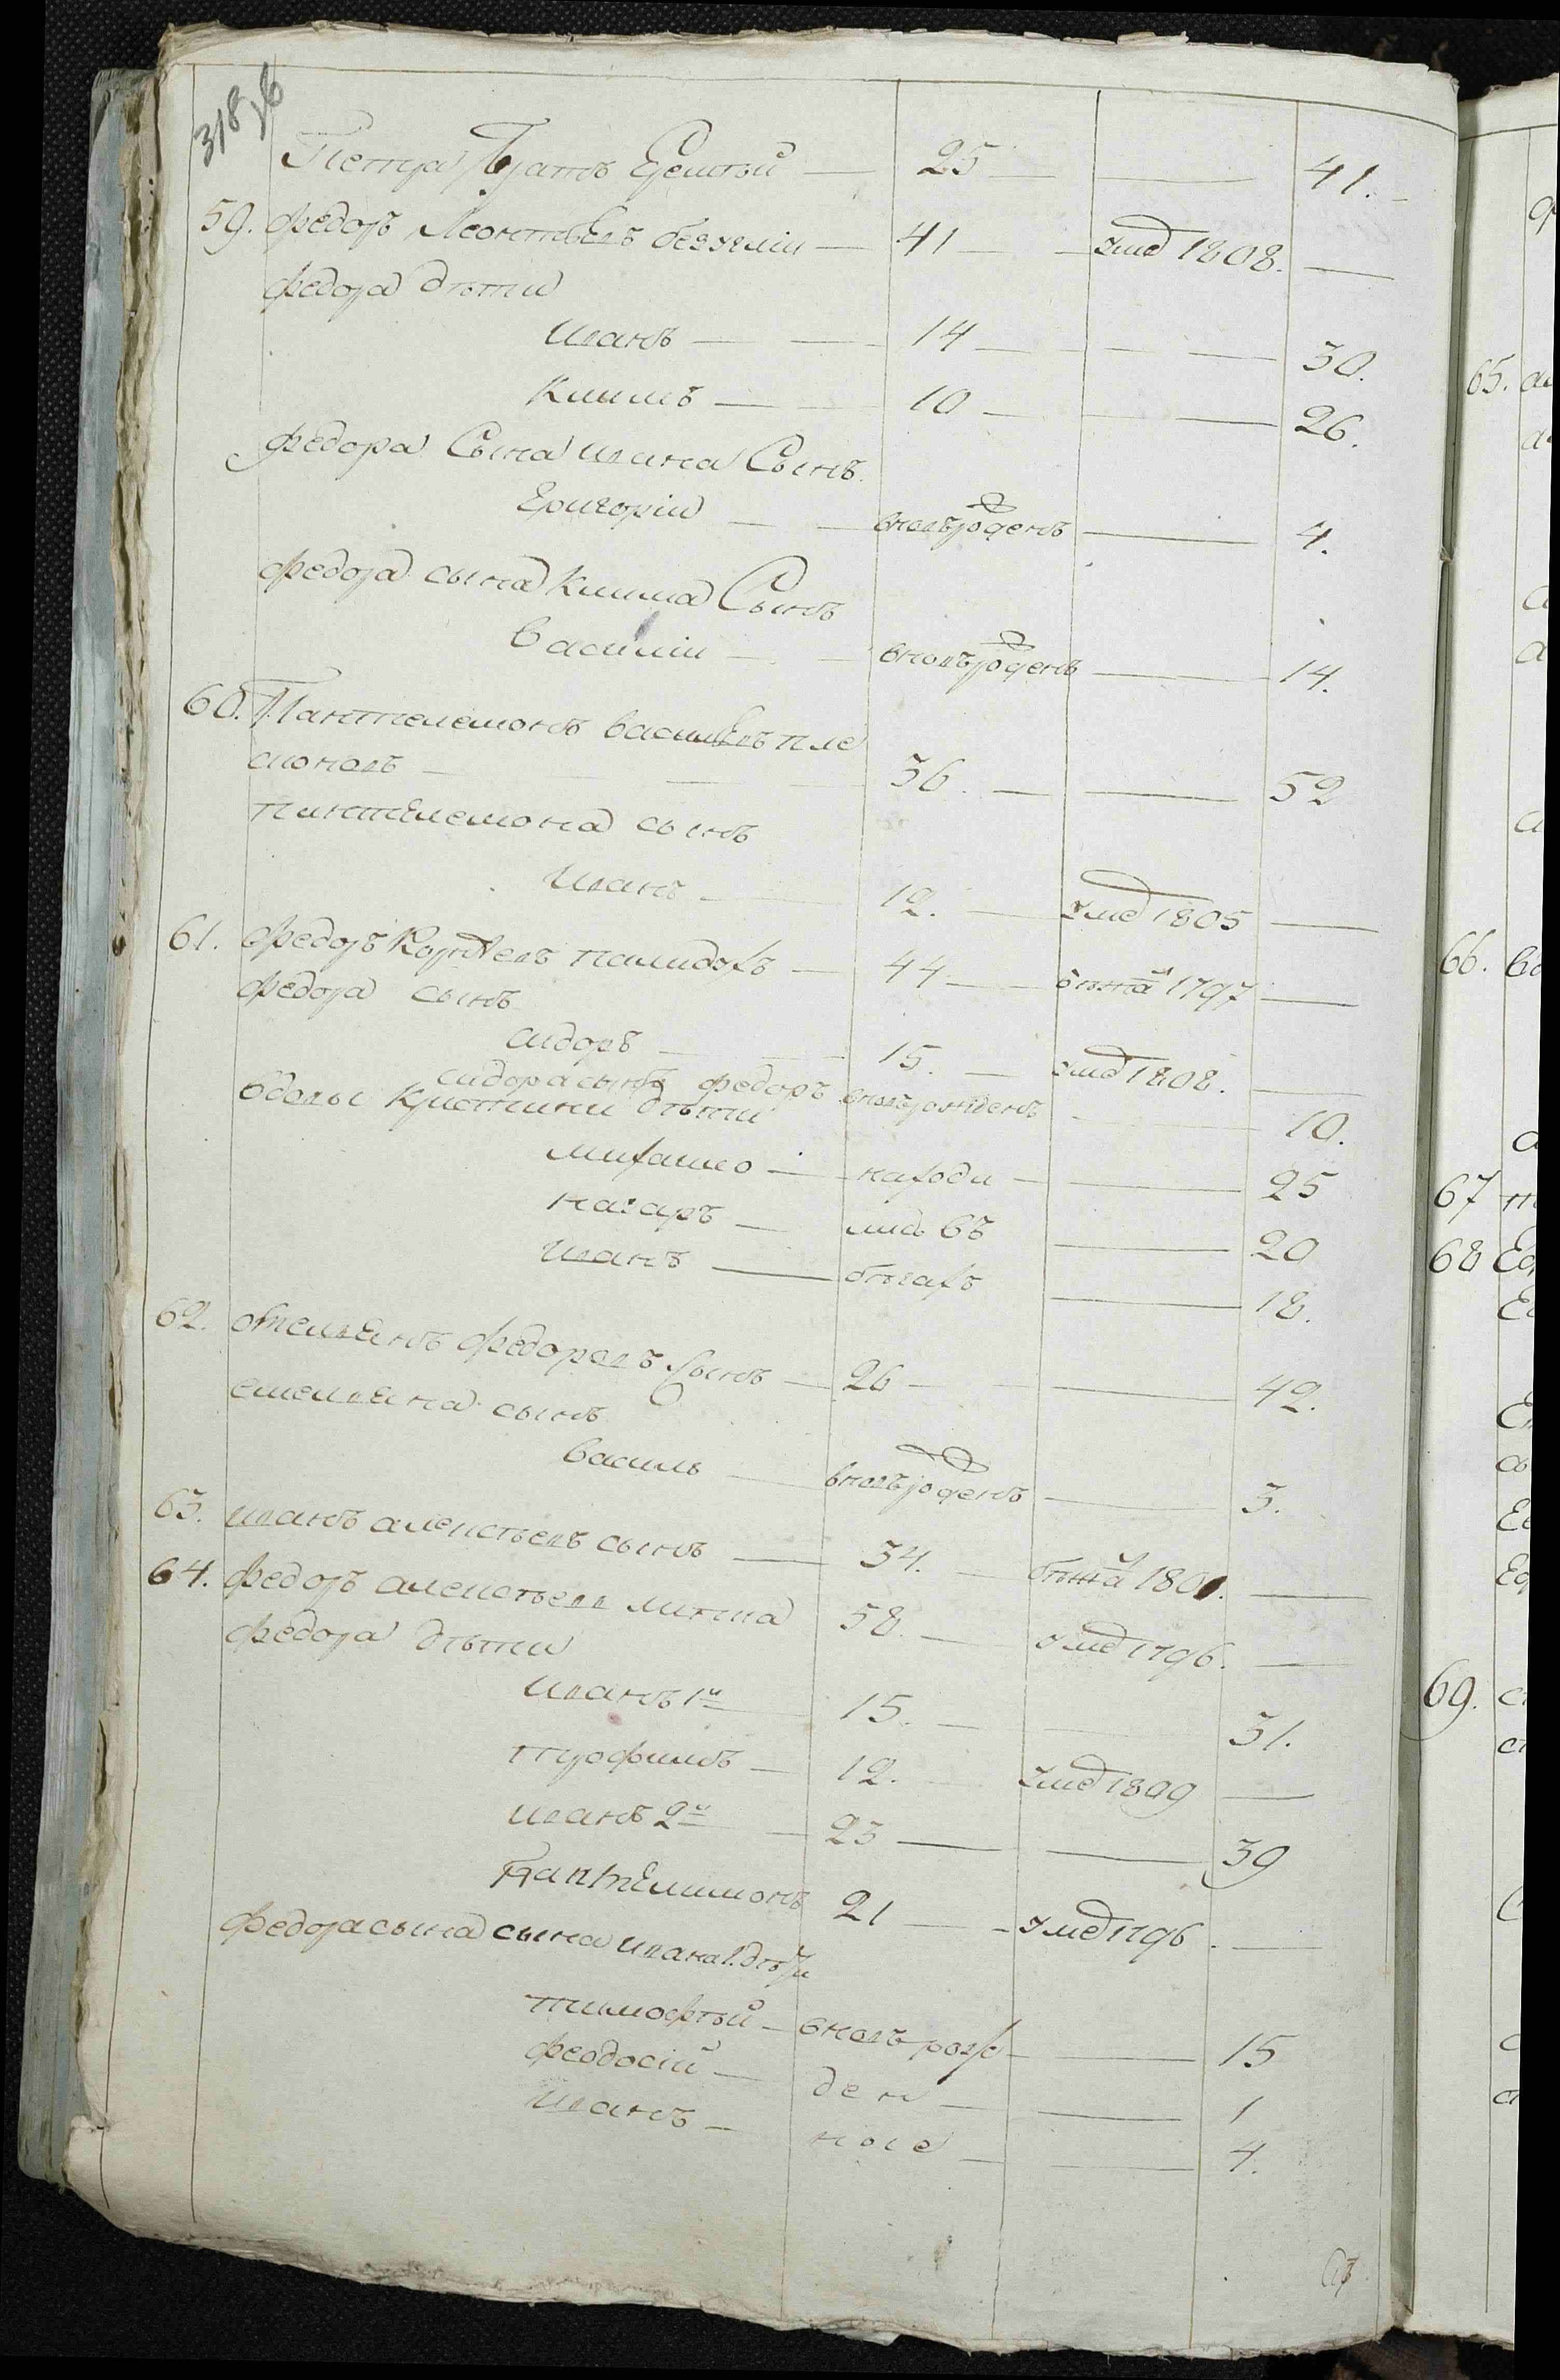 318 об
Петра Братъ Еремѣй — 25 — — 41.
59. Федоръ Леонтьевъ — 41 — умер 1808. —
Федора дѣти
Иванъ — 14 — — 30.
Климъ — 10 — — 26.
Федора Сына Ивана Сынъ
Григорій — вновьрожденъ — 4.
Федора сына Клима Сынъ
Василіи — вновьрожденъ — 14.
60. Пантелемонъ васильевъ
— 36. — — 52
пантелемона сынъ
Иванъ — 12. — умер 1805 —
61. Федоръ — 44 — бѣжа 1797 —
Федора сынъ
сидоръ — 15. — умер 1808. —
сидора сынъ федоръ вновьрожденъ — 10.
вдовы Кристини дѣти
михаило — находи — 25
назаръ — лись въ — 20
Иванъ — бѣгахъ — 18.
62. омельянъ Федоровъ Сынъ — 26 — — 42.
емельяна сынъ
василь — вновьрожденъ — 3.
63. иванъ алексѣевъ сынъ — 34. — бѣжа 1801. —
64. Федоръ алексѣевъ 58. — умер 1796. —
Федора дѣти
Иванъ 1й — 15. — — 31.
трофимъ — 12. — умер 1809 —
иванъ 2й — 23 — — 39
Пантелимонъ 21 — умер 1796. —
Федора сына сына ивана 1. дѣти
тимофѣй — вновь рож — 15
феодосій — ден — 1
Иванъ — ные — 4.